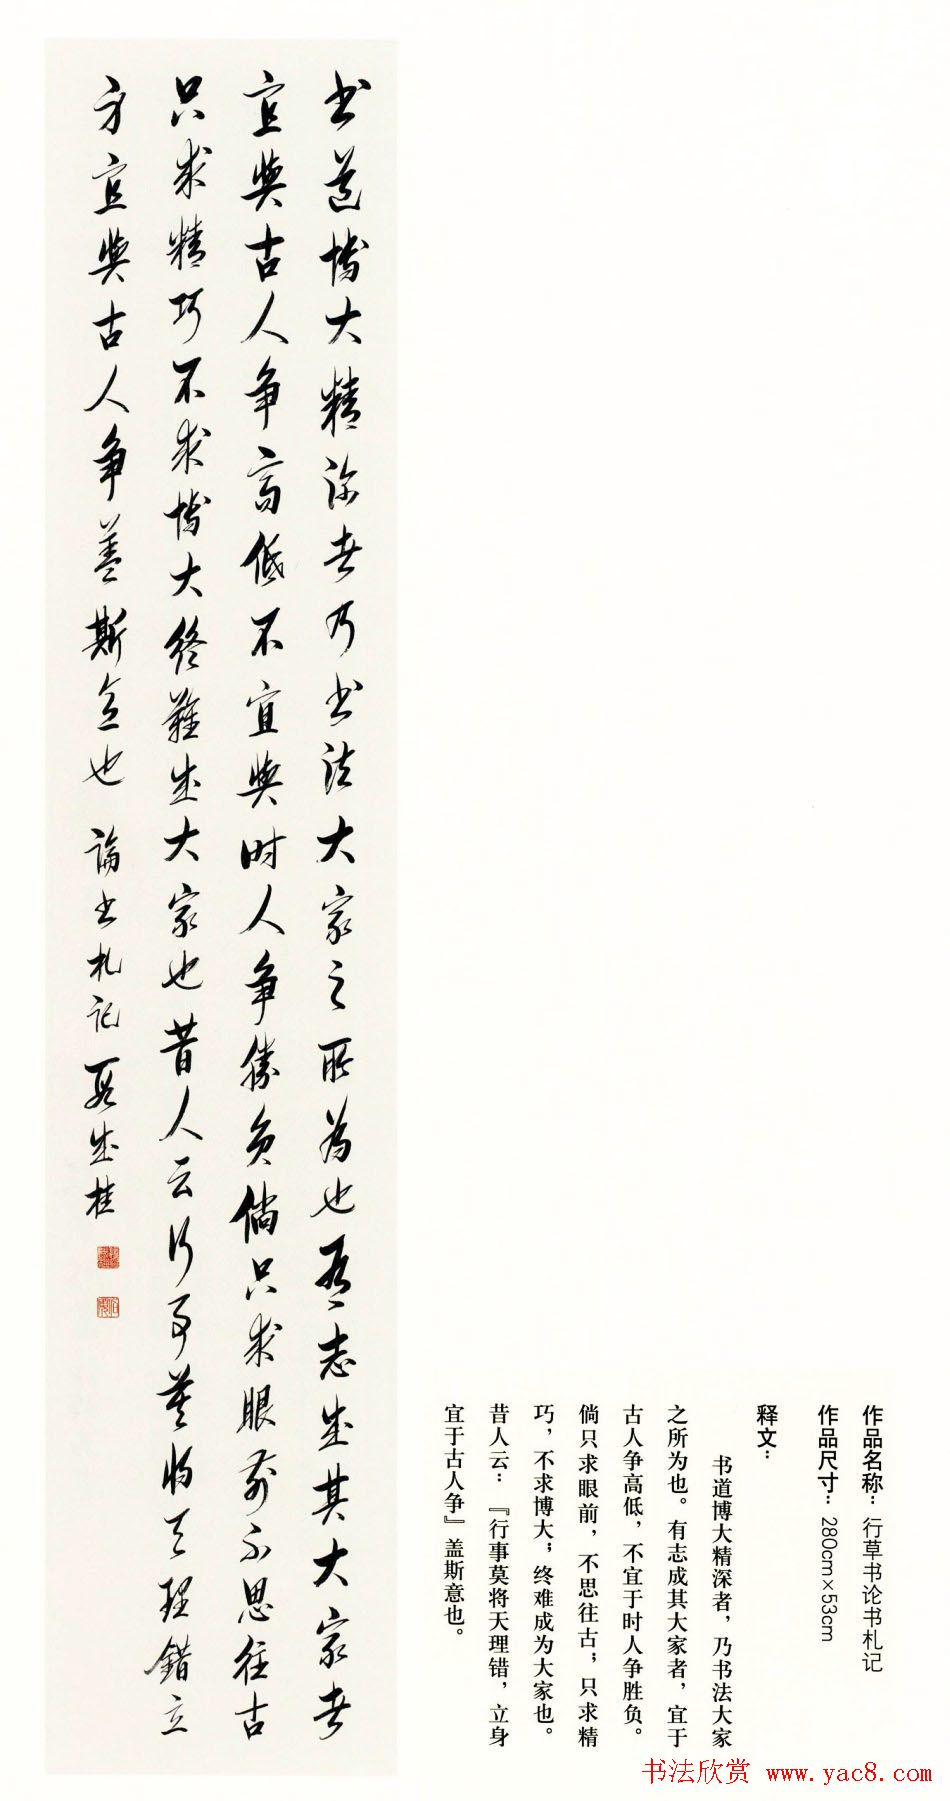 书道博大精深者乃书法大家之所為也有志成其大家者
宜與古人争高低不宜與时人争勝负倘只求眼前不思往古
只求精巧不求博大终難成大家也昔人云行事莫将天理错立
身宜與古人争蓋斯意也 論书札记 段成桂
作品名称：行草书论书札记
作品尺寸：280cm×53cm
释文：
书道博大精深者，乃书法大家
之所为也。有志成其大家者，宜于
古人争高低，不宜于时人争胜负。
倘只求眼前，不思往古；只求精
巧，不求博大；终难成为大家也。
昔人云：『行事莫将天理错，立身
宜于古人争』盖斯意也。
书法欣赏 www.yac8.com